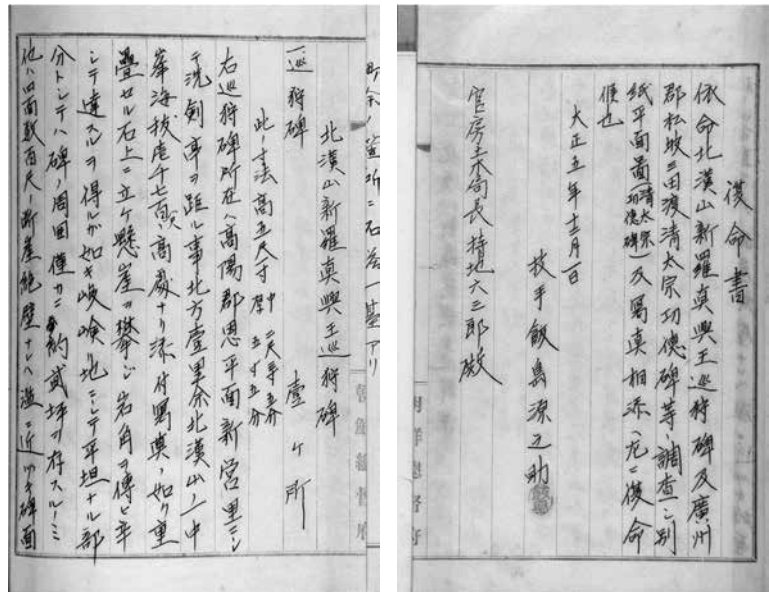 復命書
依命北漢山新羅真興王巡狩碑及廣州
郡松坡三田渡清太宗功徳碑等ノ調査シ別
紙平面圖(清太宗功徳碑)及寫真相添ヘ 復命
候也
大正五年十二月一日
技手飯島源之助
官房土木局長持地六三郎殿
朝鮮總督府
石塔一基アリ
北漢山新羅真興王巡狩碑
一、巡狩碑 壹ヶ所
此ノ寸法高五尺寸 巾二尺三寸五分 厚五寸五分
右巡狩碑所在ハ高陽郡恩平面新営里ニシ
テ洗剣亭ヲ距ル事北方壹里余北漢山ノ一中
峯海抜 千七百尺ノ高處ナリ添付寫真ノ如ク重
疊セル石上ニ立ケ懸崖ヲ攀ジ岩角ヲ傳ヒ辛
シテ達スルヲ得ルガ如キ峻嶮ノ地ニシテ平坦ナル部
分トシテハ碑ノ周囲僅カニ約貳坪ヲ存スルノミ
他ハ四面数百尺ノ断崖絶壁ナレハ 近ツキ碑面
朝鮮總督府